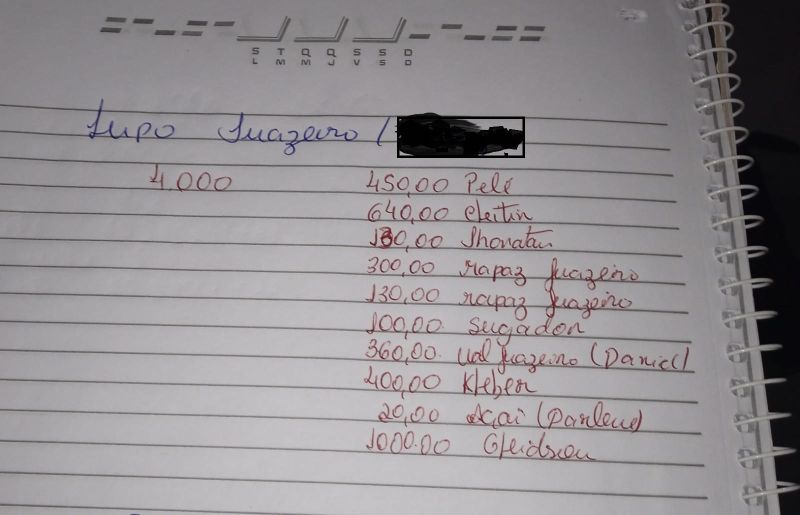 S T Q Q S S D
L M M J V S D
Lupo Juazeiro /
4.000 450,00 Pelé
640,00 cleitin
130,00 Jhonatan
300,00 rapaz Juazeiro
130,00 rapaz Juazeiro
100,00 sugador
360,00 val Juazeiro (Daniel)
400,00 Kleber
20,00 Açai (Darlene)
1000.00 Gleidson